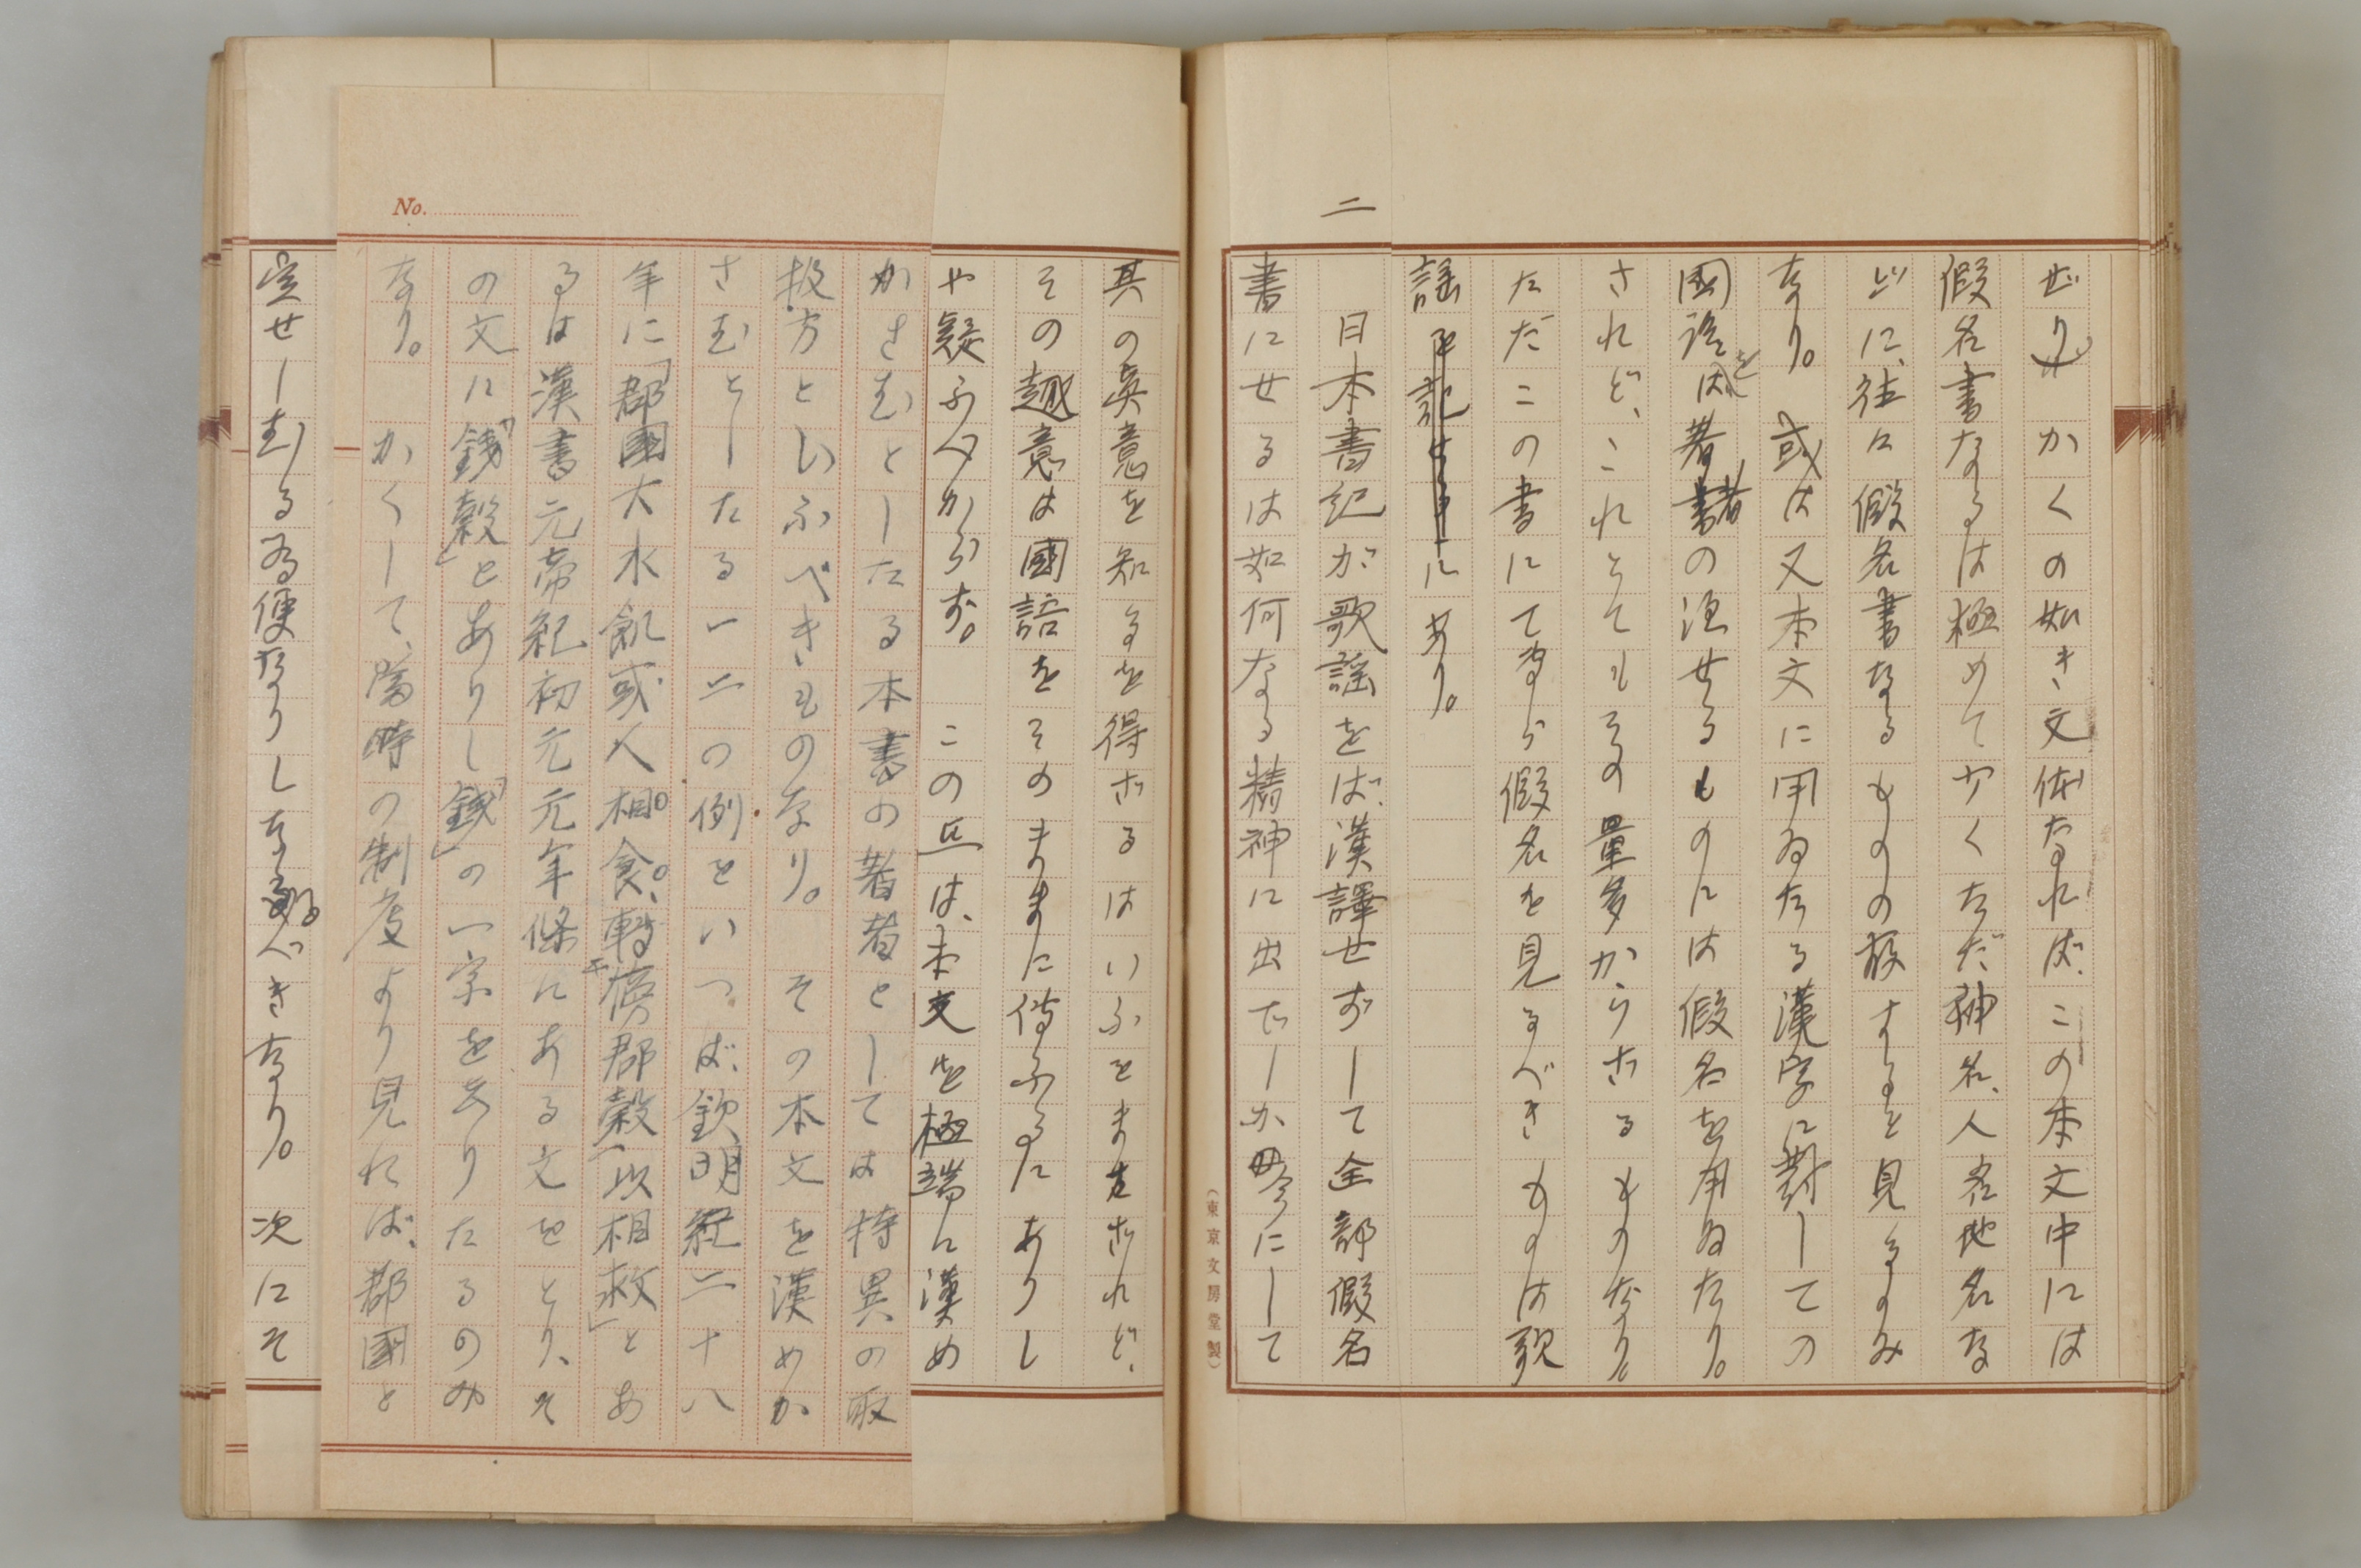 せり。かくの如き文体なれば、この本文中には
假名書なるは極めて少くただ神名、人名地名な
どに、往々假名書なるものの存するを見るのみ
なり。或は又本文に用ゐたる漢字に對しての
國語を著者の注せるものには假名を用ゐたり。
されど、これとてもその量多からざるものなり。
ただこの書にて専ら假名を見るべきものは歌
謡にあり。
二
日本書紀が歌謡をば、漢譯せずして全部假名
書にせるは如何なる精神に出でしか畧にして
其の眞意を知るを得ざるはいふをまたざれど、
その趣意は國語をそのままに傳ふるにありし
や疑ふべからず。この点は、本文を極端に漢め
No.
かさむとしたる本書の著者としては特異の取
扱方といふべきものなり。その本文を漢めか
さむとしたる一二の例をいつば、欽明紀二十八
年に「郡國大水飢或人相食、轉傍郡穀以相救」とあ
るは漢書元帝紀初元元年條にある文をとり、そ
の文に「錢穀」とありし「錢」の一字を去りたるのみ
なり。かくして、當時の制度より見れば、郡國と
宣せしむる為便なりしなるべきなり。次にそ
(東京文房堂製)